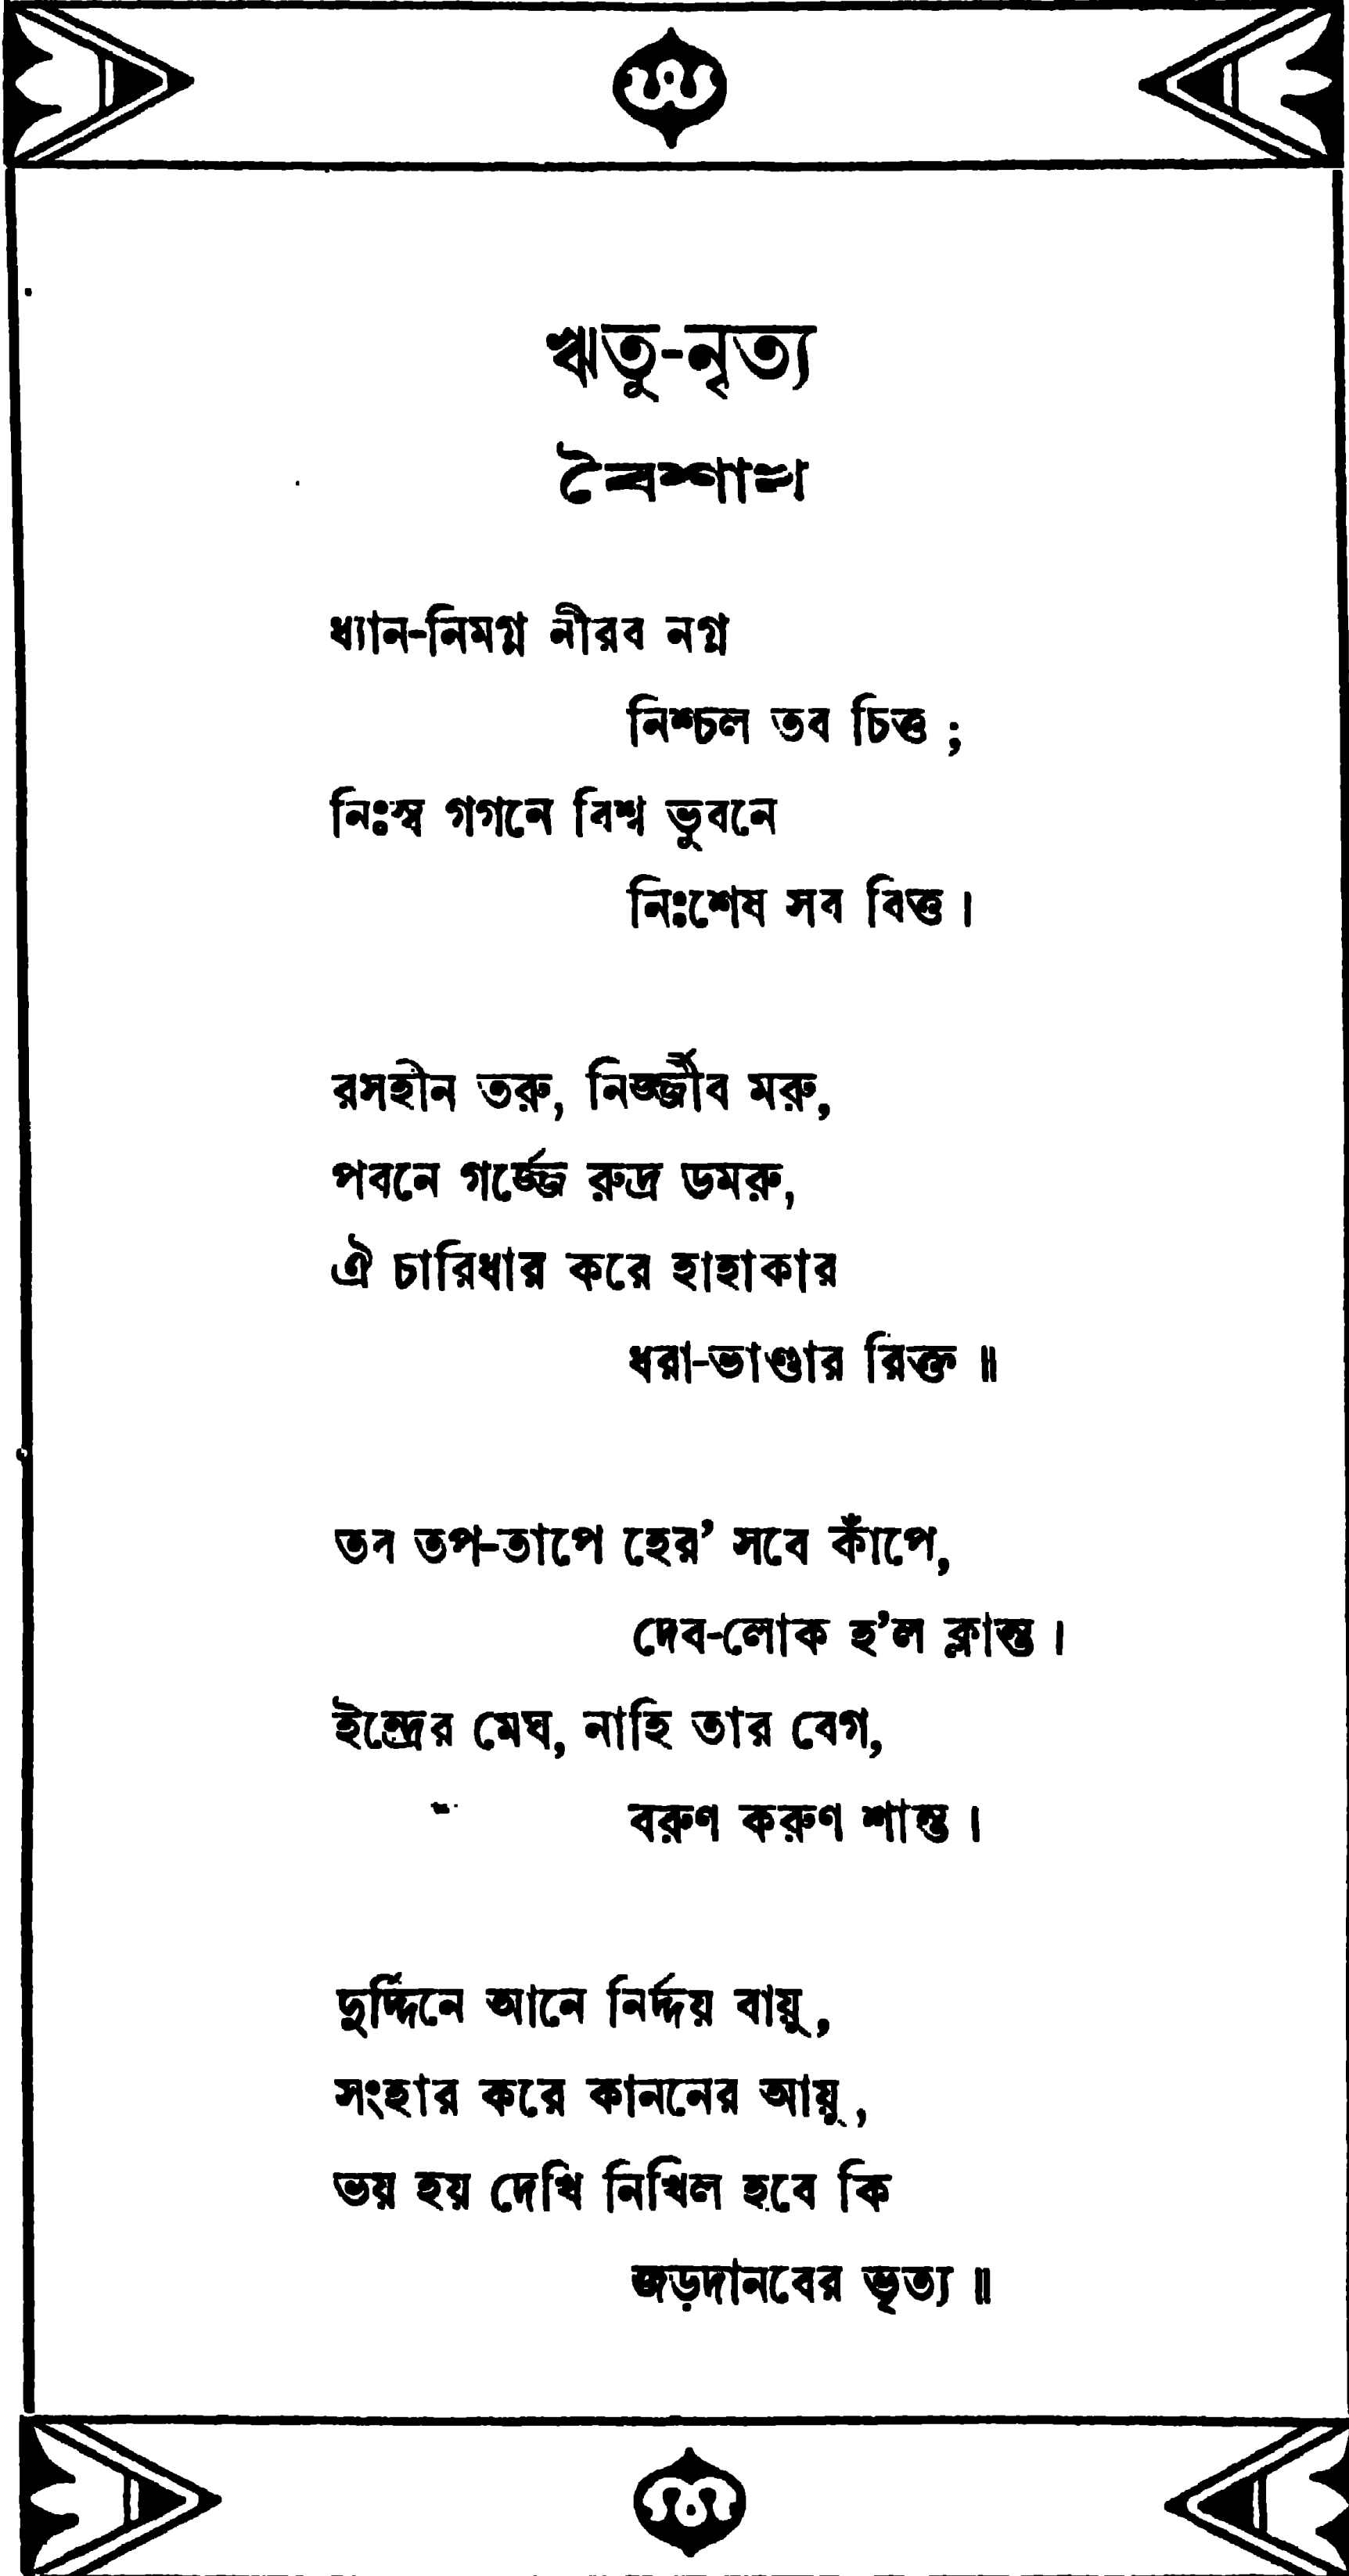 ঋতু-নৃত্য
বৈশাখ
ধ্যান-নিমগ্ন নীরব নগ্ন
নিশ্চল তব চিত্ত ;
নিঃস্ব গগনে বিশ্ব ভুবনে
নিঃশেষ সব বিত্ত ।
রসহীন তরু, নির্জ্জীব মরু,
পবনে গর্জ্জে রুদ্র ডমরু,
ঐ চারিধার করে হাহাকার
ধরা-ভাণ্ডার রিক্ত ॥
তব তপ-তাপে হের’ সবে কাঁপে,
দেব-লোক হ’ল ক্লান্ত ।
ইন্দ্রের মেঘ, নাহি তার বেগ,
বরুণ করুণ শান্ত ।
দুর্দ্দিনে আনে নির্দ্দয় বায়ু,
সংহার করে কাননের আয়ু,
ভয় হয় দেখি নিখিল হবে কি
জড়দানবের ভৃত্য ॥